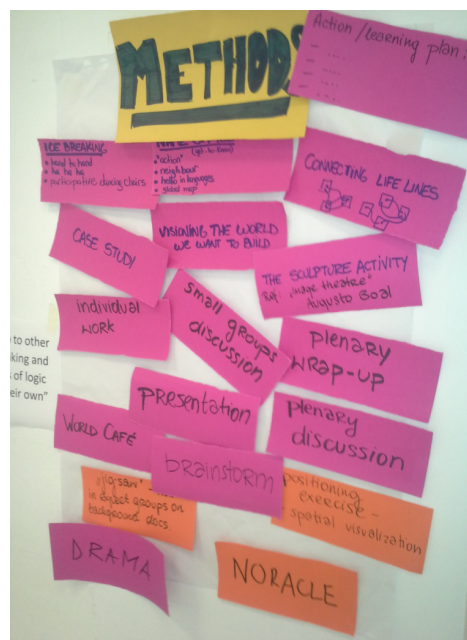 METHODS
Action/learning plan:
ICE BREAKING
• hand to hand
• ha ha ha
• participative dancing chairs
(get to know)
"action"
• neighbour
• hello in languages
• global map
CONNECTING LIFE LINES
CASE STUDY
VISIONING THE WORLD
WE WANT TO BUILD
THE SCULPTURE ACTIVITY
Ref: "image theatre"
Augusto Boal
individual
work
small groups
discussion
plenary
wrap-up
to other
king and
of logic
eir own"
presentation
plenary
discussion
WORLD CAFÉ
brainstorm
"jigsaw"
in expert groups on
background docs
positioning
exercise -
spatial visualization
DRAMA
NORACLE